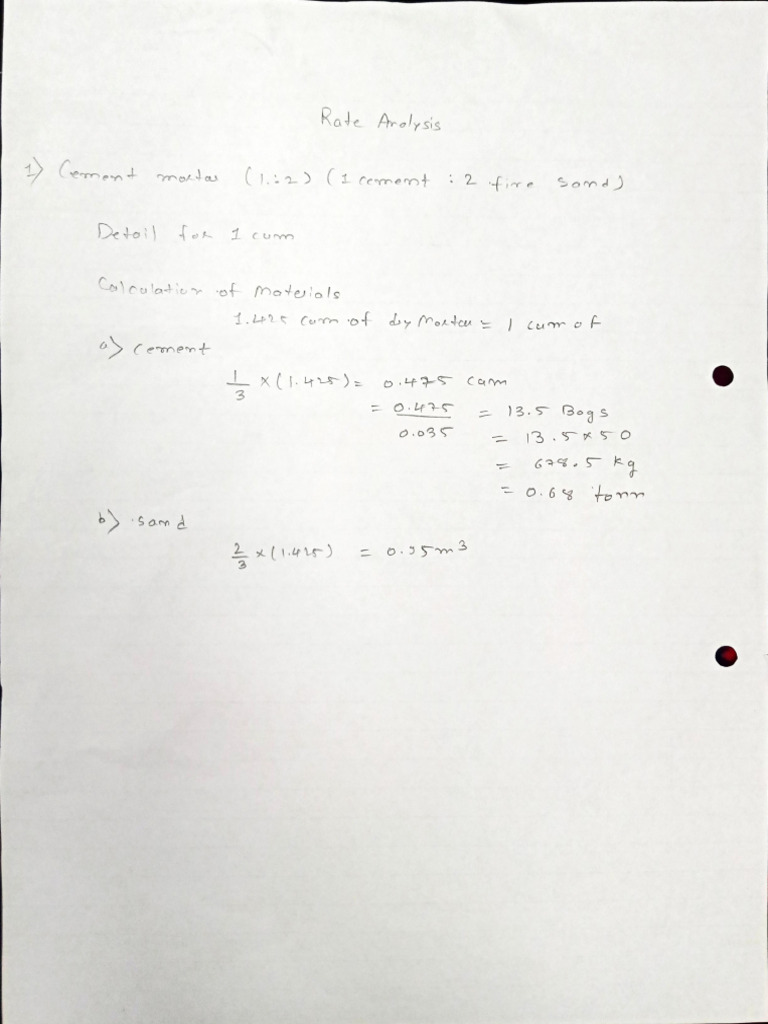 Rate Analysis
1) Cement mortar (1:2) (1 cement : 2 fine sand)
Detail for 1 cum
Calculation of Materials
1.425 cum of dry Mortar = 1 cum of
a) cement
1/3 x (1.425) = 0.475 cum
= 0.475/0.035 = 13.5 Bags
= 13.5 x 50
= 678.5 kg
= 0.68 tonn
b) sand
2/3 x (1.425) = 0.95 m³